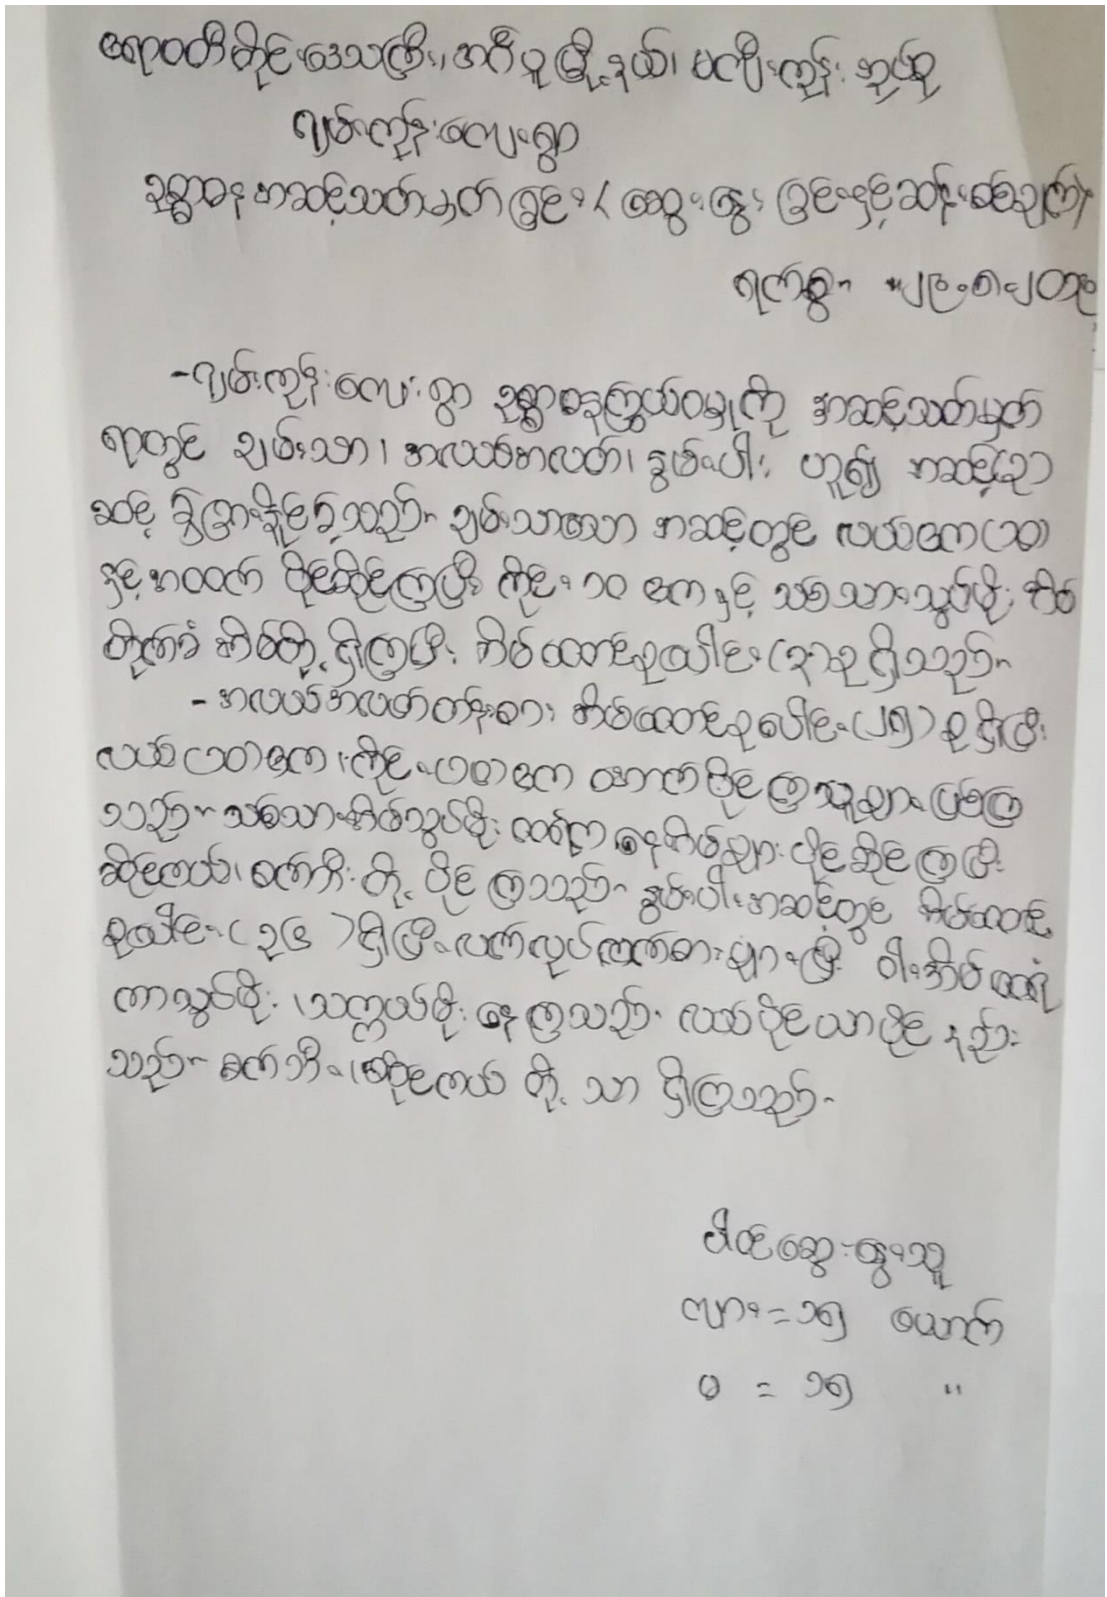 ဧရာဝတီတိုင်းဒေသကြီး၊ အင်္ဂပူမြို့နယ်၊ မကျီးကုန်း အုပ်စု
ဂျမ်းကုန်းလေးရွာ
ဥစ္စာဓန အဆင့်သတ်မှတ်ခြင်း (ဆွေးနွေးခြင်းနှင့်ဆန်းစစ်ချက်)
ရက်စွဲ။
-ဂျမ်းကုန်းလေးရွာ ဥစ္စာဓနကြွယ်ဝမှုကို အဆင့်သတ်မှတ်
ရာတွင် ချမ်းသာ၊ အလယ်အလတ်၊ နွမ်းပါး ဟူ၍ အဆင့်(၃)
ဆင့် ခွဲခြားနိုင်ခဲ့သည်။ ချမ်းသာသော အဆင့်တွင် လယ်ဧက(၁၀)
နှင့်အထက် ပိုင်ဆိုင်ကြပြီး ကိုင်း ၁၀ ဧကနှင့် သစ်သားသွပ်မိုး အိမ်
တိုက်ခံအိမ်တို့ ရှိကြပြီး အိမ်ထောင်စုပေါင်း (၃)စု ရှိသည်။
- အလယ်အလတ်တန်းစား အိမ်ထောင်စုပေါင်း(၂၅)စု ရှိပြီး
လယ်(၁၀)ဧက၊ ကိုင်း(၁၀)ဧက အောက်ပိုင်ကြသူများ ဖြစ်ကြ
သည်။ သစ်သားအိမ်သွပ်မိုး နေအိမ်များ ပိုင်ဆိုင်ကြပြီး
ဆိုင်ကယ်၊ စက်ဘီး တို့ ပိုင်ကြသည်။ နွမ်းပါးအဆင့်တွင် အိမ်ထောင်
စုပေါင်း(၃၄)ရှိပြီး လက်လုပ်လက်စားများပြီး ဝါးအိမ် ထရံ
ကာသွပ်မိုး၊ သက္ကယ်မိုး နေကြသည်။ လယ်ပိုင်ယာပိုင် နည်း
သည်။ စက်ဘီး၊ ဆိုင်ကယ် တို့ သာ ရှိကြသည်။
ပါဝင်ဆွေးနွေးသူ
ကျား = ၁၅ ယောက်
မ = ၁၅ "